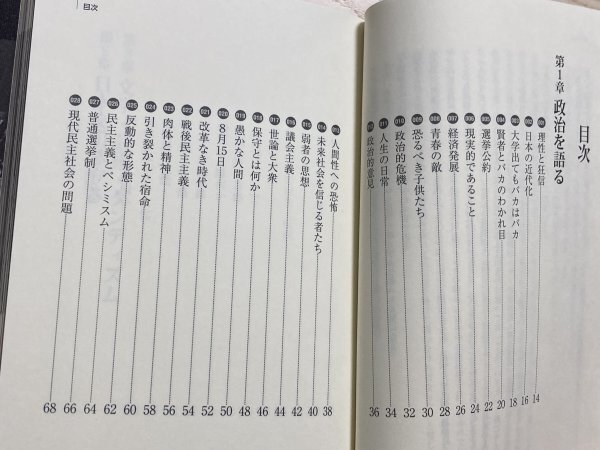 目次
第1章 政治を語る
001 理性と狂信 14
002 日本の近代化 16
003 大学出てもバカはバカ 18
004 賢者とバカのわかれ目 20
005 選挙公約 22
006 現実的であること 24
007 経済発展 26
008 青春の敵 28
009 恐るべき子供たち 30
010 政治的危機 32
011 人生の日常 34
012 政治的意見 36
目次
013 人間性への恐怖 38
014 未来社会を信じる者たち 40
015 弱者の思想 42
016 議会主義 44
017 世論と大衆 46
018 保守とは何か 48
019 愚かな人間 48
020 8月15日 50
021 改革なき時代 52
022 戦後民主主義 54
023 肉体と精神 56
024 引き裂かれた宿命 58
025 反動的な形態 60
026 民主主義とペシミスム 62
027 普通選挙制 64
028 現代民主社会の問題 68